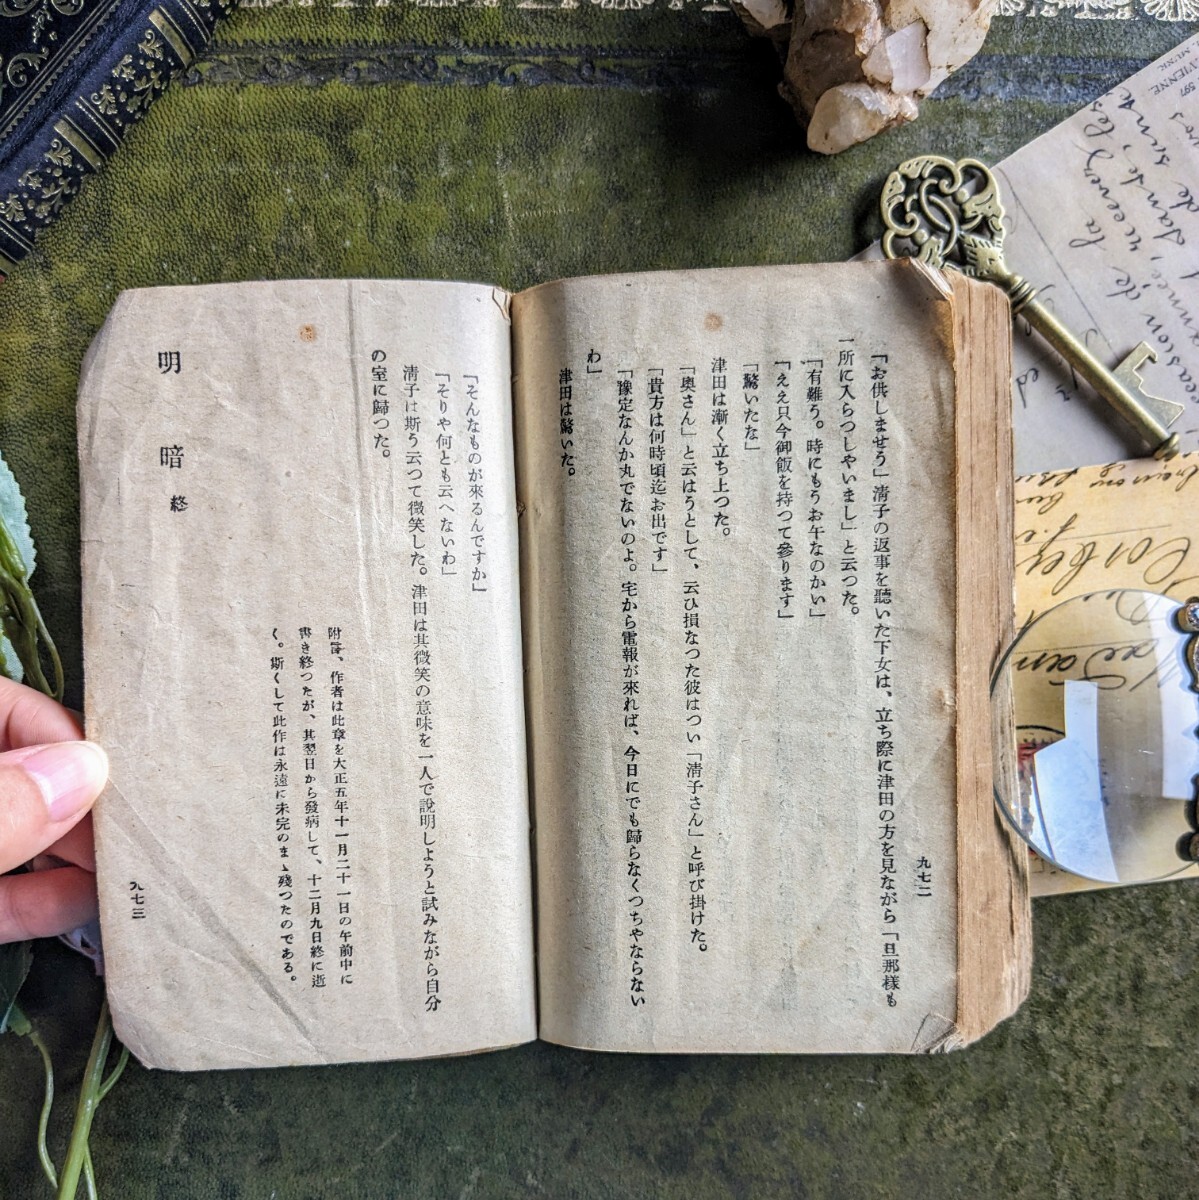 「お供しませう」清子の返事を聽いた下女は、立ち際に津田の方を見ながら「旦那樣も
一所に入らつしやいまし」と云つた。
「有難う。時にもうお午なのかい」
「ええ只今御飯を持つて參ります」
「驚いたな」
津田は漸く立ち上つた。
「奧さん」と云はうとして、云ひ損なつた彼はつい「清子さん」と呼び掛けた。
「貴方は何時頃迄お出です」
「豫定なんか丸でないのよ。宅から電報が來れば、今日にでも歸らなくつちやならない
わ」
津田は驚いた。
九七二
「そんなものが來るんですか」
「そりや何とも云へないわ」
清子は斯う云つて微笑した。津田は其微笑の意味を一人で說明しようと試みながら自分
の室に歸つた。
附言、作者は此章を大正五年十一月二十一日の午前中に
書き終つたが、其翌日から發病して、十二月九日終に逝
く。斯くして此作は永遠に未完のまゝ殘つたのである。
明暗 終
九七三
VIENNE
597